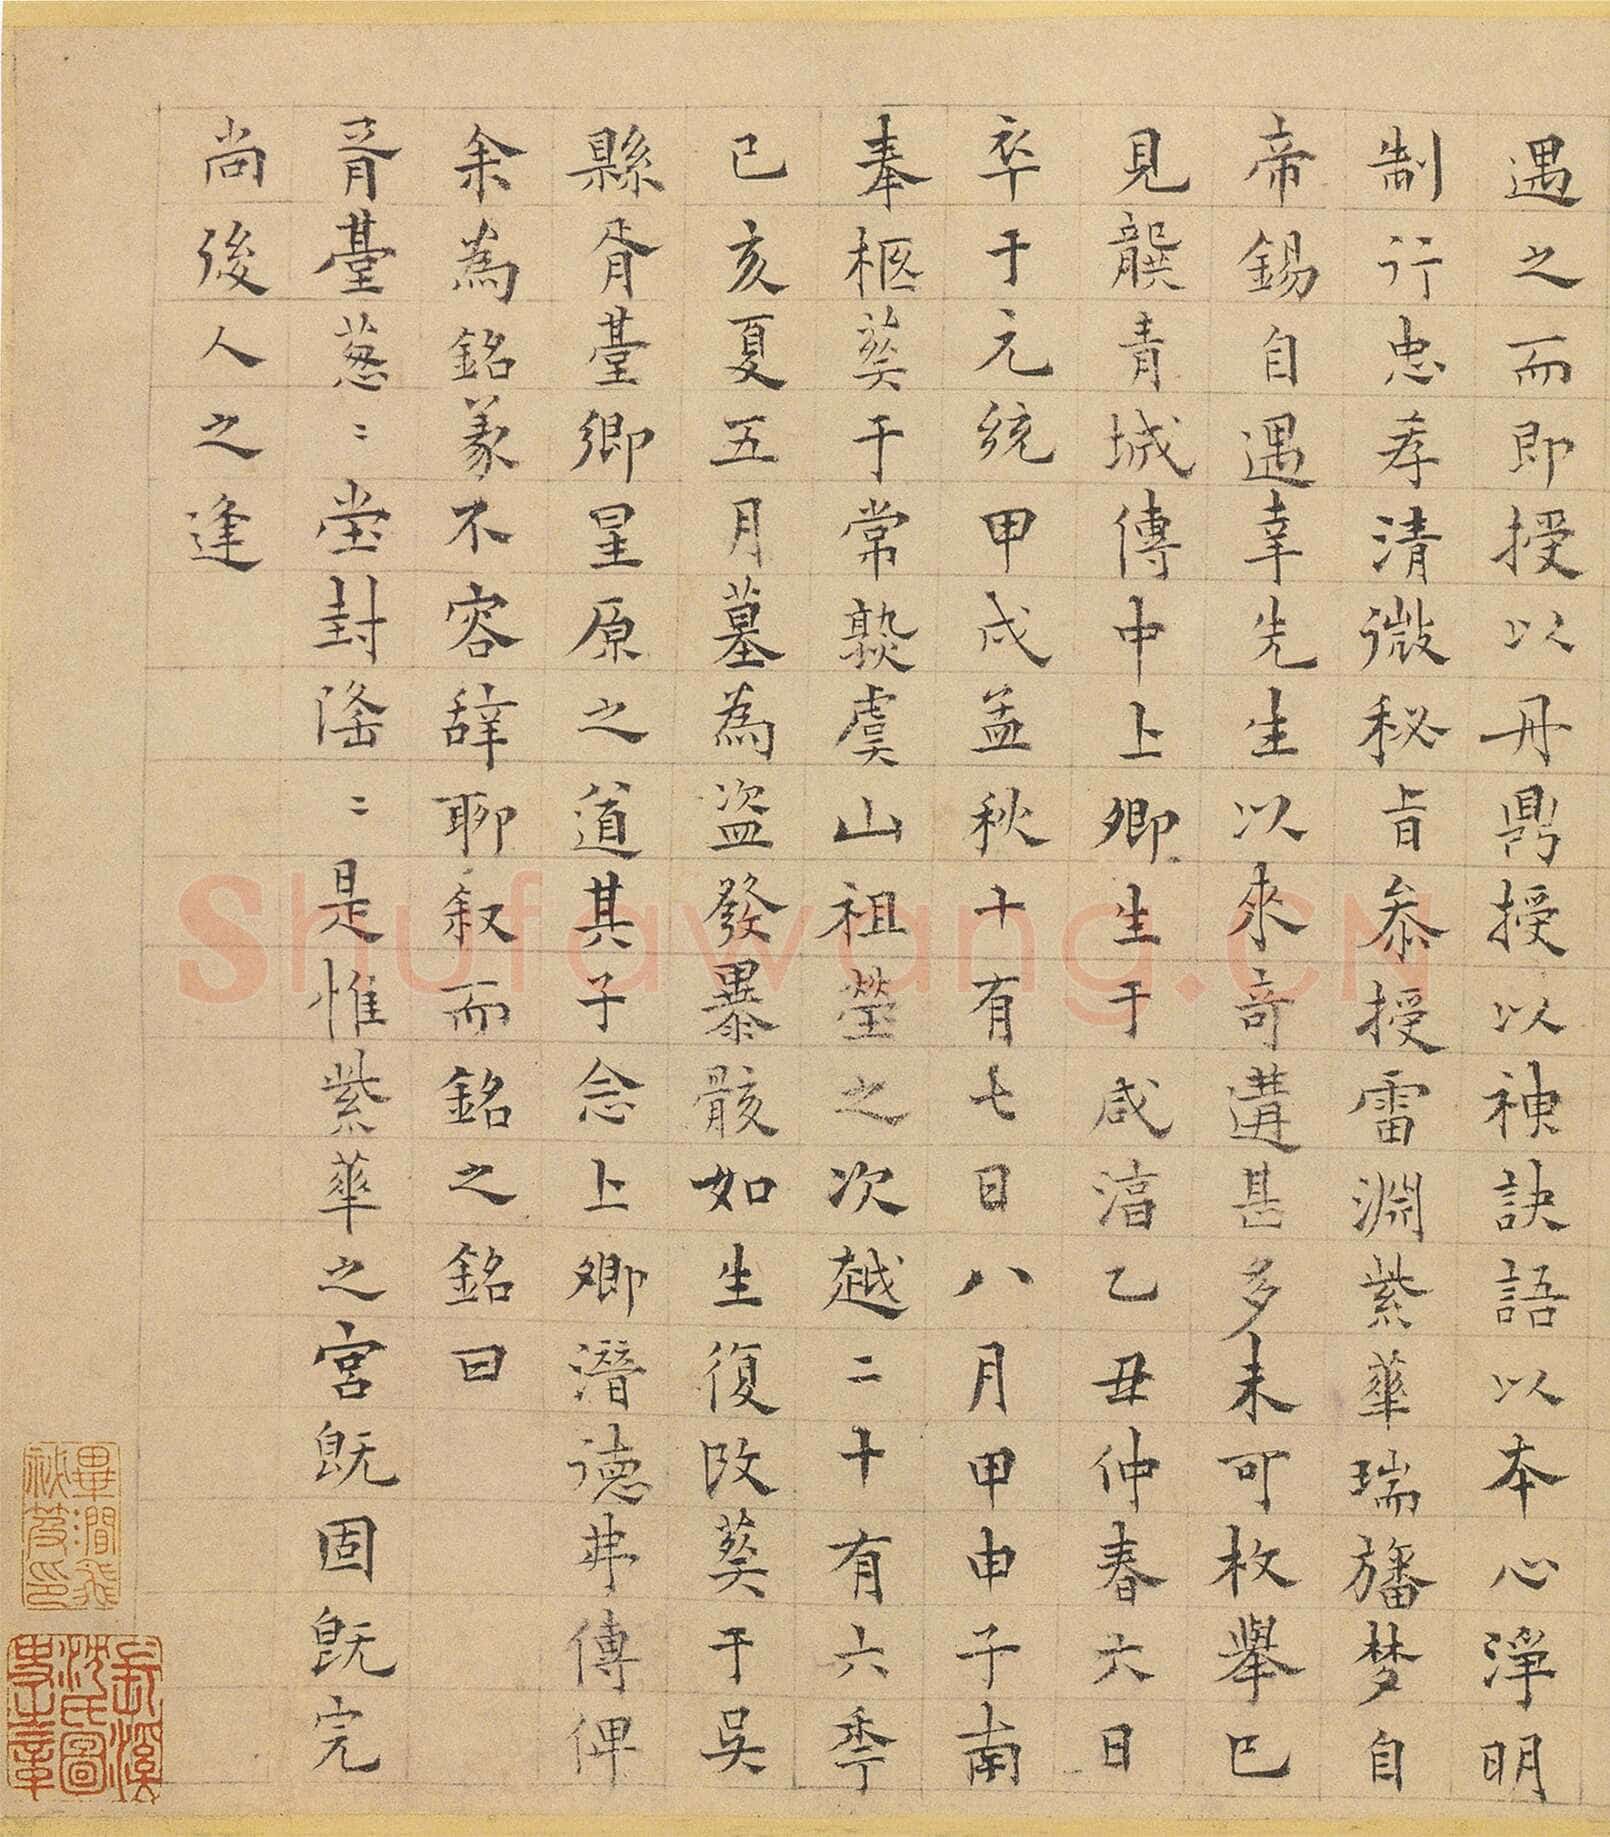 遇之而即授以丹鼎授以神訣語以本心淨明
制行忠孝清微秘旨叅授雷淵紫華瑞旛梦自
帝錫自遇幸先生以來奇遘甚多未可枚舉已
見龔青城傳中上卿生于咸淳乙丑仲春六日
卒于元統甲戌孟秋十有七日八月甲申子南
奉柩葬于常熟虞山祖塋之次越二十有六季
已亥夏五月墓為盜發暴骸如生復改葬于吳
縣胥臺鄉星原之道其子念上卿潛德弗傳俾
余為銘蒙不容辞聊叙而銘之銘曰
胥臺葱〻堂封隆〻是惟紫華之宮既固既完
尚後人之逢
畢澗飛秘笈印
Shufawang.CN